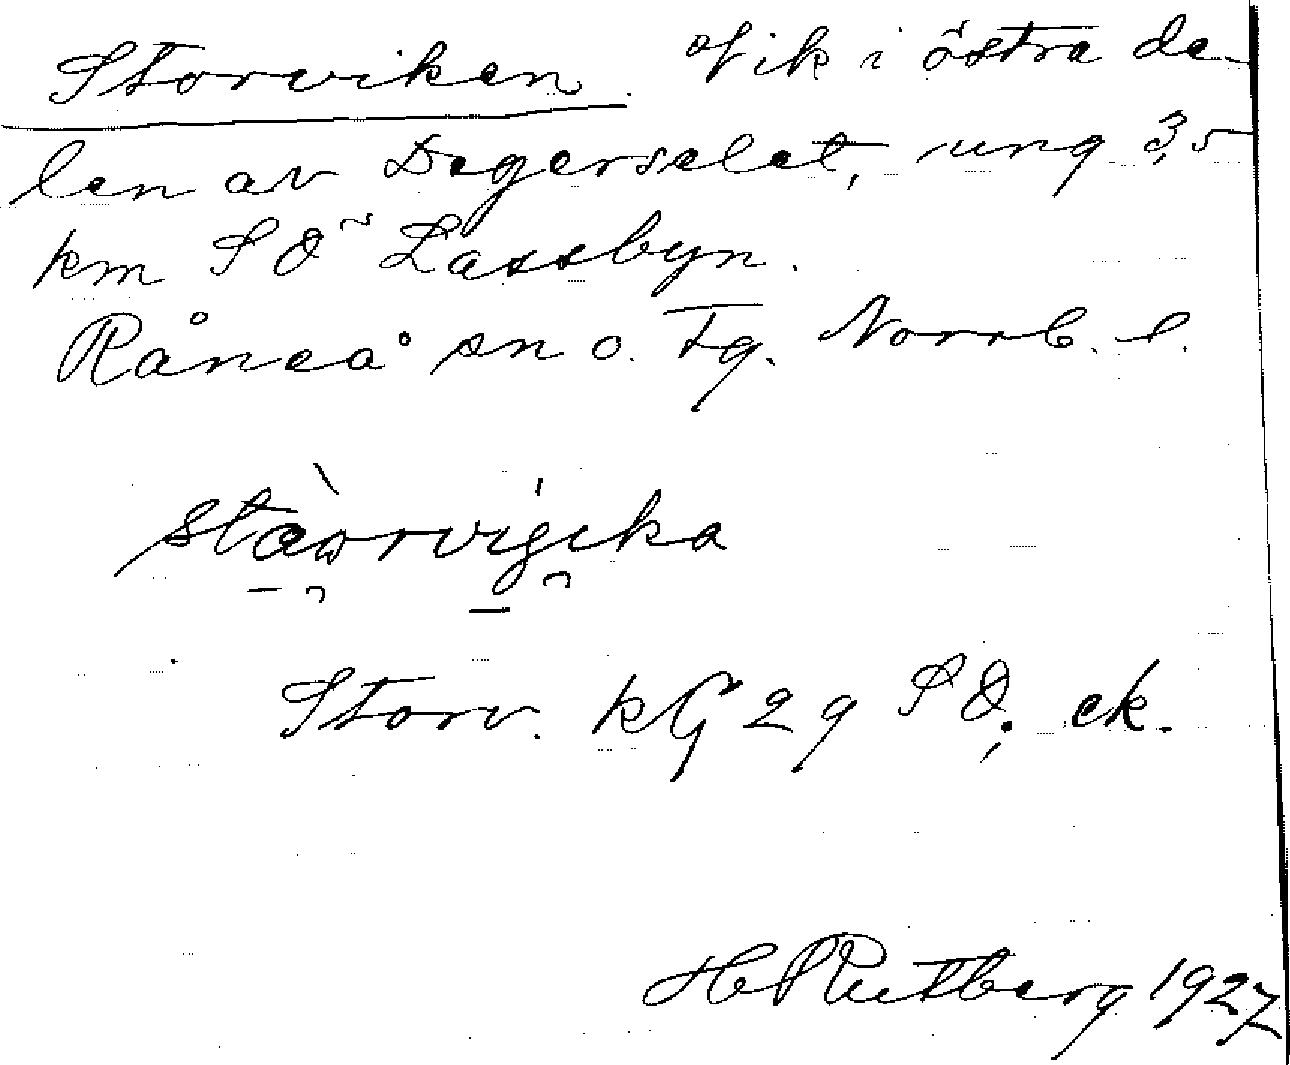 Storviken. Vik i östra de-
len av Degerselet, ung 3,5
km SÖ Lassbyn.
Råneå sn o. Tg. Norrb. l.
stàωrvig̨ika
Storv. kG 29 SÖ; ek.
H Rutberg 1927